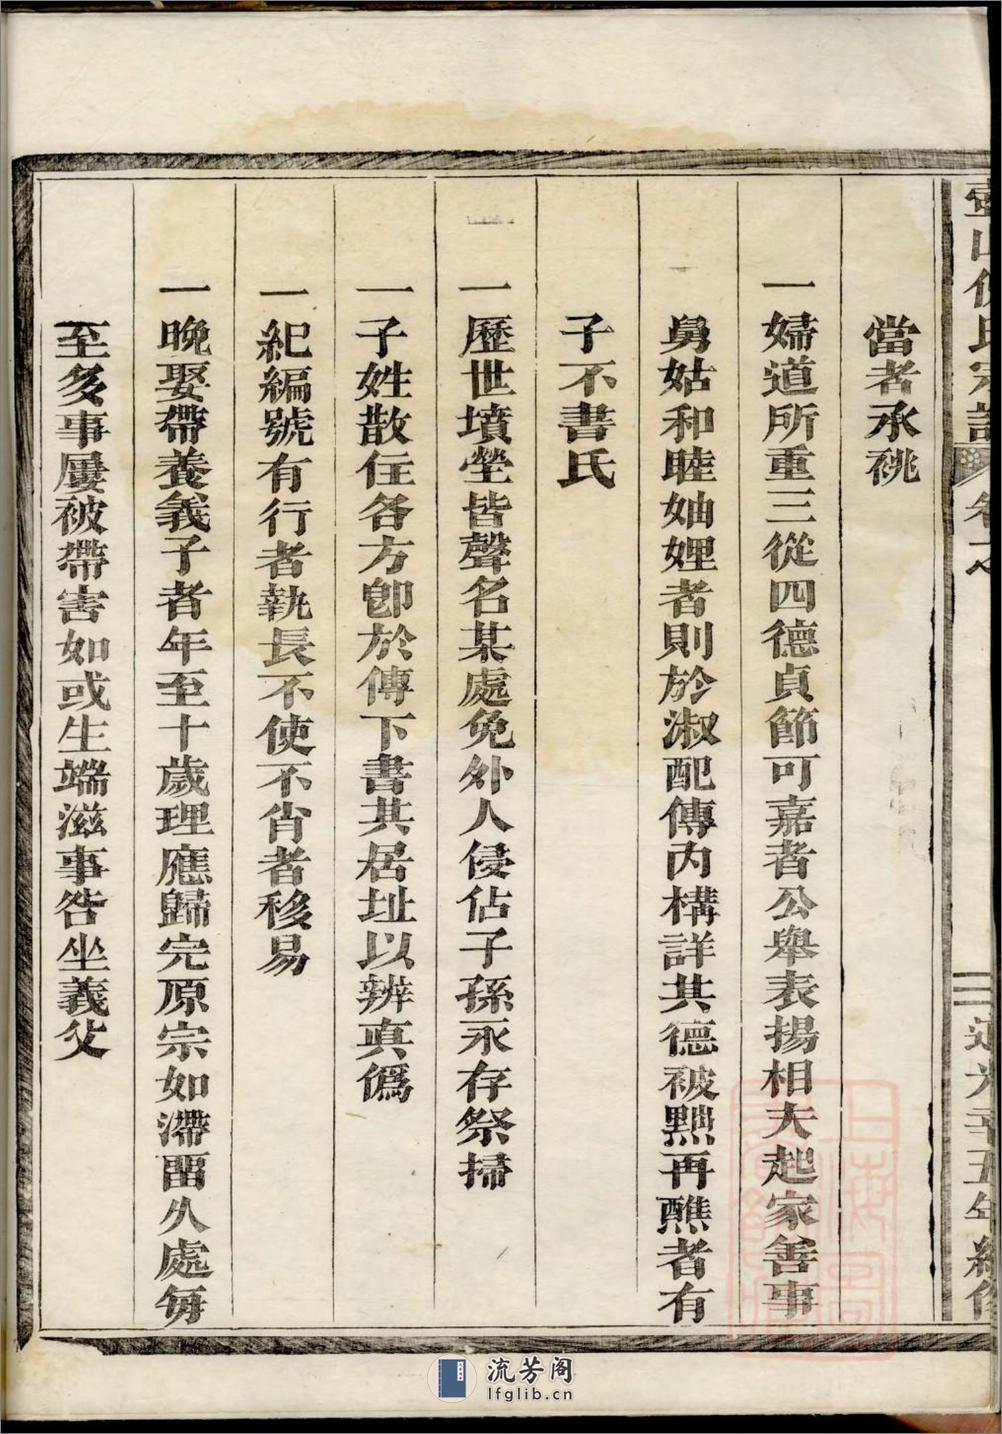 當者承祧
一婦道所重三從四德貞節可嘉者公舉表揚相夫起家善事
舅姑和睦妯娌者則於淑配傳內構詳其德被黜再醮者有
子不書氏
一歷世墳塋皆聲名某處免外人侵佔子孫永存祭掃
一子姓散住各方卽於傳下書其居址以辨真僞
一紀編號有行者執長不使不肖者移易
一晩娶帶養義子者年至十歲理應歸完原宗如滯畱久處每
至多事屢被帶害如或生端滋事咎坐義父
流芳阁
lfglib.cn